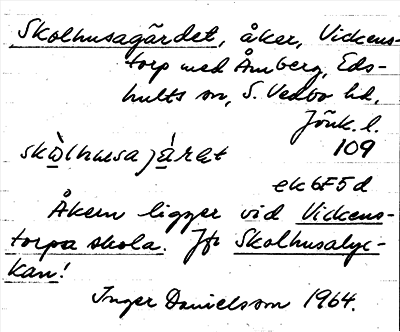 Skolhusagärdet, åker, Vickens-
torp med Åmberg, Eds-
hults sn, S. Vedbo hd,
Jönk. l.
skòlhusajáret 109
ek 6F5d
Åkern ligger vid Vickens-
torpa skola. Jfr Skolhusalyc-
kan!
Inger Danielsson 1964.